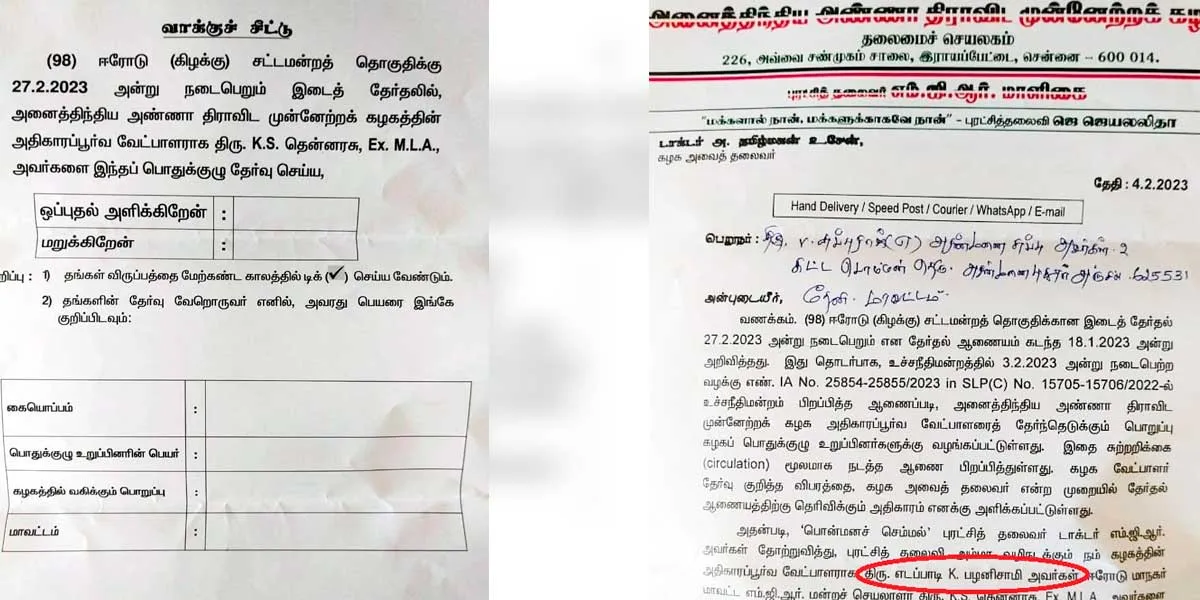 வாக்குச் சீட்டு
(98) ஈரோடு (கிழக்கு) சட்டமன்றத் தொகுதிக்கு
27.2.2023 அன்று நடைபெறும் இடைத் தேர்தலில்,
அனைத்திந்திய அண்ணா திராவிட முன்னேற்றக் கழகத்தின்
அதிகாரப்பூர்வ வேட்பாளராக திரு. K.S. தென்னரசு, Ex. M.L.A.,
அவர்களை இந்தப் பொதுக்குழு தேர்வு செய்ய,
ஒப்புதல் அளிக்கிறேன் :
மறுக்கிறேன் :
றிப்பு : 1) தங்கள் விருப்பத்தை மேற்கண்ட காலத்தில் டிக் (✓) செய்ய வேண்டும்.
2) தங்களின் தேர்வு வேறொருவர் எனில், அவரது பெயரை இங்கே
குறிப்பிடவும்:
கையொப்பம் :
பொதுக்குழு உறுப்பினரின் பெயர் :
கழகத்தில் வகிக்கும் பொறுப்பு :
மாவட்டம் :
அனைத்திந்திய அண்ணா திராவிட முன்னேற்றக் கழ
தலைமைச் செயலகம்
226, அவ்வை சண்முகம் சாலை, இராயப்பேட்டை, சென்னை – 600 014.
புரட்சித் தலைவர் எம்.ஜி.ஆர். மாளிகை
"மக்களால் நான், மக்களுக்காகவே நான்" – புரட்சித்தலைவி ஜெ ஜெயலலிதா
டாக்டர் அ. தமிழ்மகன் உசேன்,
கழக அவைத் தலைவர்
தேதி : 4.2.2023
Hand Delivery / Speed Post / Courier / WhatsApp / E-mail
பெறுநர் : திரு. V. அய்யராஜ் (எ) அரண்மனை சுப்பு அவர்கள் 2
625531
அன்புடையீர், தேனி மாவட்டம்.
வணக்கம். (98) ஈரோடு (கிழக்கு) சட்டமன்றத் தொகுதிக்கான இடைத் தேர்தல்
27.2.2023 அன்று நடைபெறும் என தேர்தல் ஆணையம் கடந்த 18.1.2023 அன்று
அறிவித்தது. இது தொடர்பாக, உச்சநீதிமன்றத்தில் 3.2.2023 அன்று நடைபெற்ற
வழக்கு எண். IA No. 25854-25855/2023 in SLP(C) No. 15705-15706/2022-ல்
உச்சநீதிமன்றம் பிறப்பித்த ஆணைப்படி, அனைத்திந்திய அண்ணா திராவிட
முன்னேற்றக் கழக அதிகாரப்பூர்வ வேட்பாளரைத் தேர்ந்தெடுக்கும் பொறுப்பு
கழகப் பொதுக்குழு உறுப்பினர்களுக்கு வழங்கப்பட்டுள்ளது. இதை சுற்றறிக்கை
(circulation) மூலமாக நடத்த ஆணை பிறப்பித்துள்ளது. கழக வேட்பாளர்
தேர்வு குறித்த விபரத்தை, கழக அவைத் தலைவர் என்ற முறையில் தேர்தல்
ஆணையத்திற்கு தெரிவிக்கும் அதிகாரம் எனக்கு அளிக்கப்பட்டுள்ளது.
அதன்படி, 'பொன்மனச் செம்மல்' புரட்சித் தலைவர் டாக்டர் எம்.ஜி.ஆர்.
அவர்கள் தோற்றுவித்து, புரட்சித் தலைவி அம்மா வழிநடத்திய நம் கழகத்தின்
அதிகாரப்பூர்வ வேட்பாளராக திரு. எடப்பாடி K. பழனிசாமி அவர்கள் ஈரோடு மாநகர்
மாவட்ட எம்.ஜி.ஆர். மன்றச் செயலாளர் திரு. K.S. தென்னரசு, Ex. M.L.A., அவர்களை